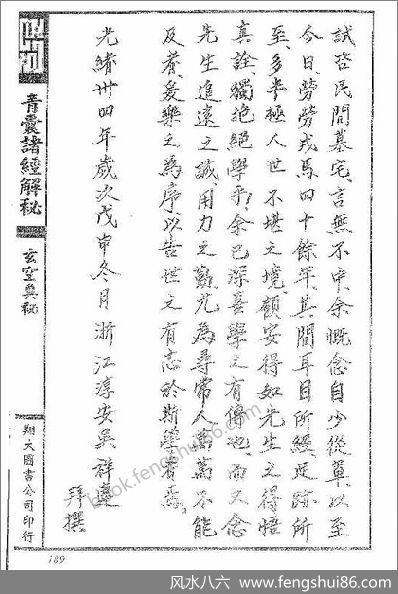 試咨民間墓宅言無不中余慨念自少從軍以至
今日勞勞戎馬四十餘年其間耳目所經足跡所
至多半極人世不堪之境顧安得如先生之得悟
真詮獨抱絕學乎余已深喜學之有傳也而又念
先生追遠之誠用力之勤尤為尋常人萬萬不能
及者爰樂之為序以告世之有志於斯學者焉
光緒卅四年歲次戊申冬月浙江淳安吳祥
拜撰
青囊諸經解秘
玄空奧秘
翔大圖書公司印行
189
book.fengshui86.com
风水八六 | www.fengshui86.com